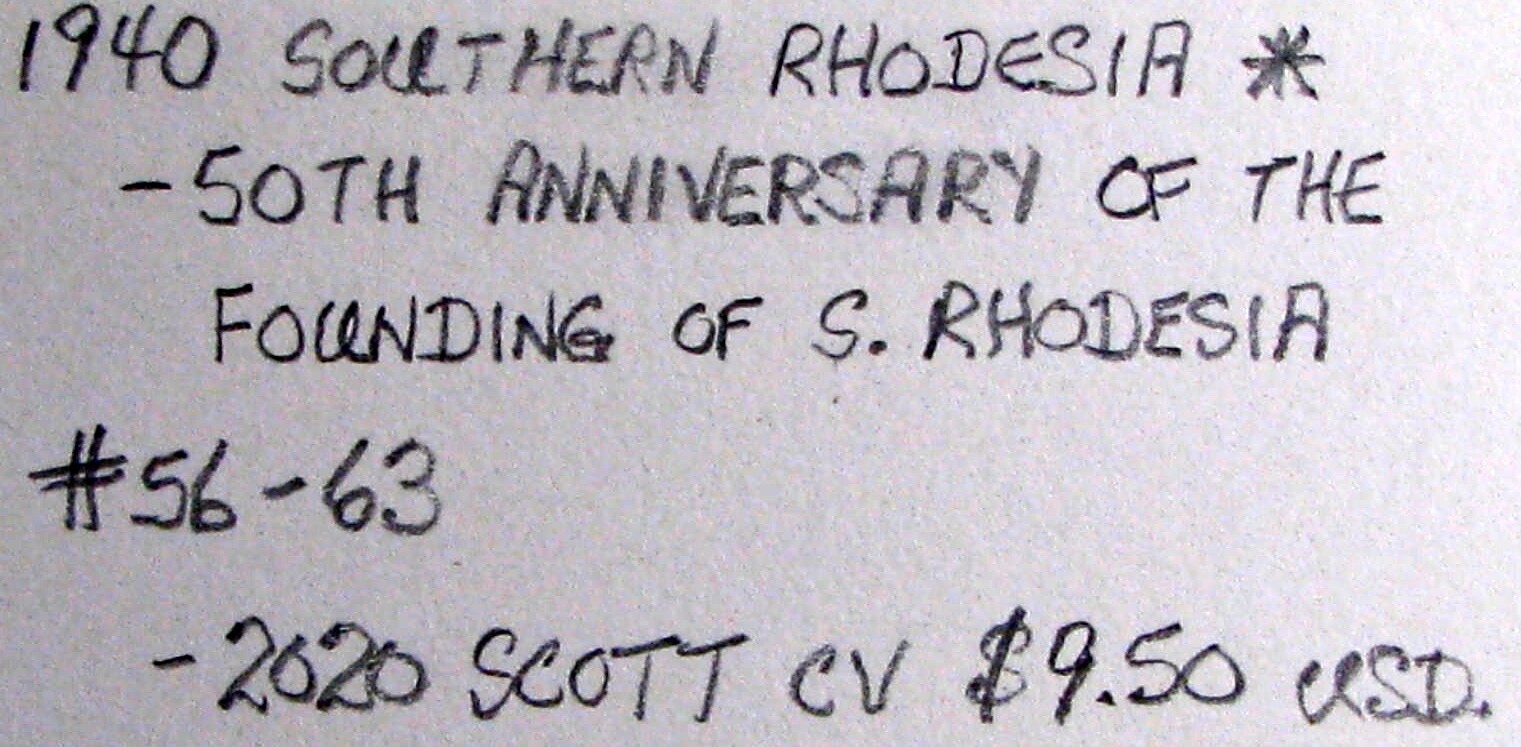 1940 SOUTHERN RHODESIA *
-50TH ANNIVERSARY OF THE
FOUNDING OF S. RHODESIA
#56-63
-2020 SCOTT CV $9.50 USD.